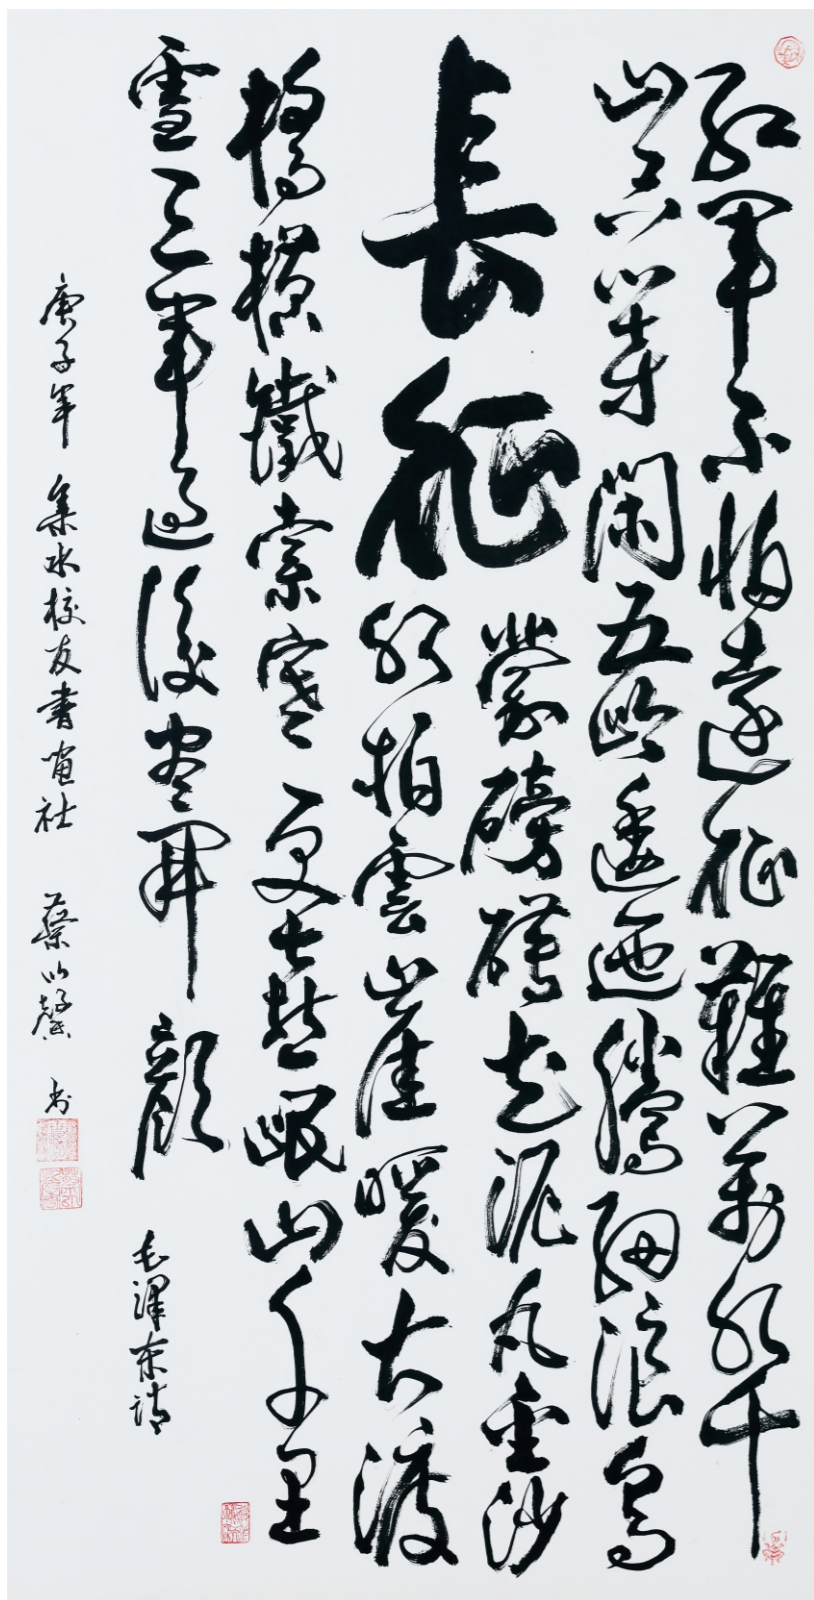 紅軍不怕遠征難萬水千
山只等閑五岭逶迤騰細浪烏
長征
蒙磅礴走泥丸金沙
水拍雲崖暖大渡
橋橫鐵索寒更喜岷山千里
雪三軍過後盡開顏 毛澤東詩
庚子年 集水校友書畫社 蔡以馨 书